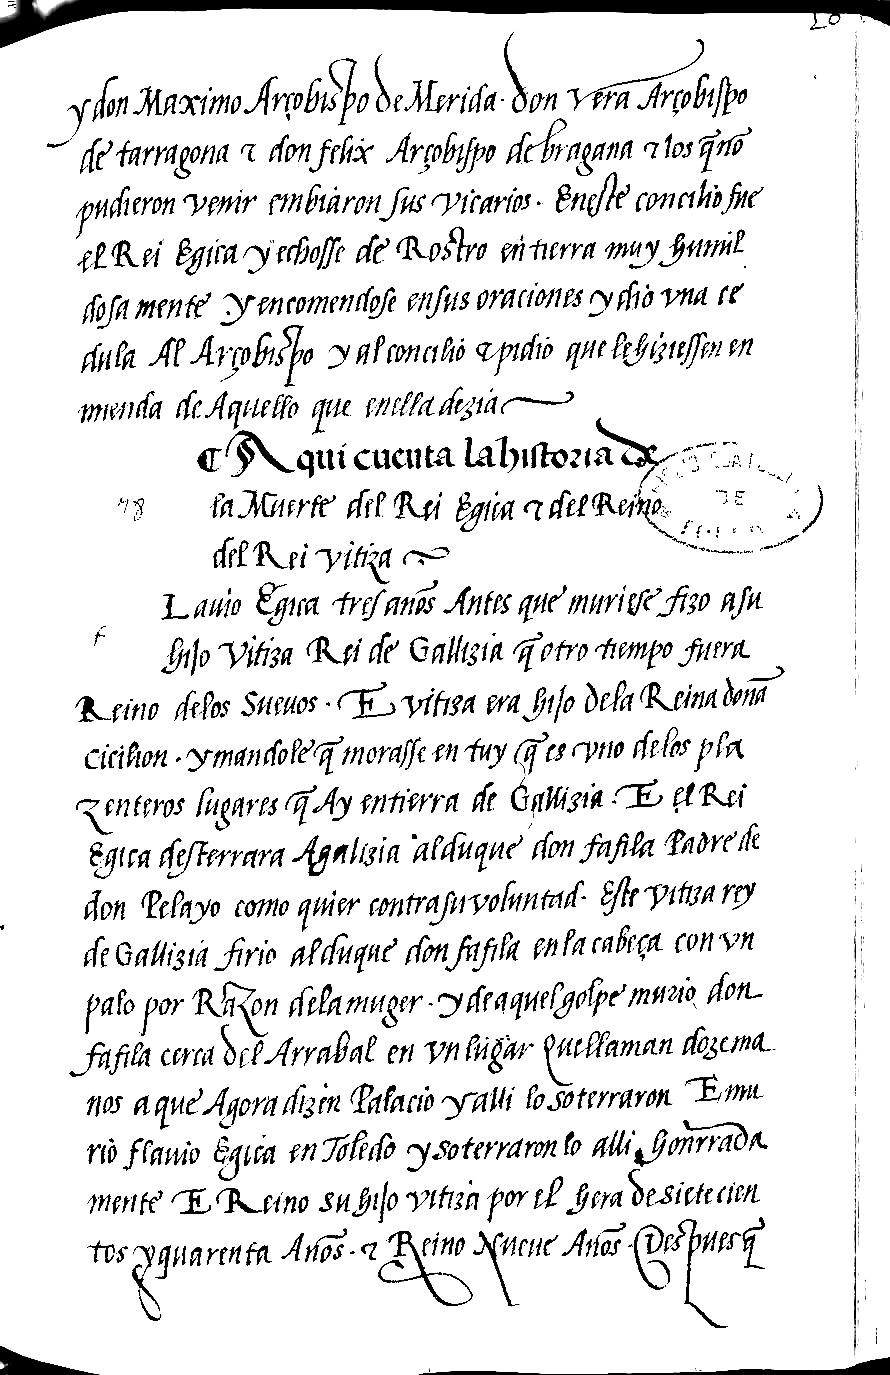 y don Maximo Arçobispo de Merida · don vera Arçobispo
de tarragona τ don felix Arçobispo de bragana τ los q̃ no
pudieron venir embiaron sus vicarios · Eneste concilio fue
el Rei Egica y echosse de Rostro en tierra muy humil
dosa mente y encomendose ensus oraciones y dio vna ce
dula Al Arçobispo y al concilio τ pidio que le hiziessen en
mienda de Aquello que enella dezia
¶ Aqui cuenta la historia de
78 la Muerte del Rei Egica τ del Reino
del Rei vitiza
Lauio Egica tres años Antes que muriese fizo a su
hijo Vitiza Rei de Gallizia q̃ otro tiempo fuera
Reino delos Suevos · E vitiza era hijo de la Reina doña
Cicilion · y mandole q̃ morasse en tuy q̃ es vno delos pla
zenteros lugares q̃ Ay entierra de Gallizia · E el Rei
Egica desterrara Agalizia al duque don fafila Padre de
don Pelayo como quier contra su voluntad · Este vitiza rey
de Gallizia firio al duque don fafila en la cabeça con vn
palo por Razon dela muger · y de aquel golpe murio don
fafila cerca del Arrabal en vn lugar quellaman dozema
nos a que Agora dizen Palacio y alli lo soterraron E mu
rio flauio Egica en Toledo y soterraron lo alli honrrada
mente E Reino su hijo vitiza por el hera de siete cien
tos y quarenta Años · τ Reino Nueue Años · Despues q̃